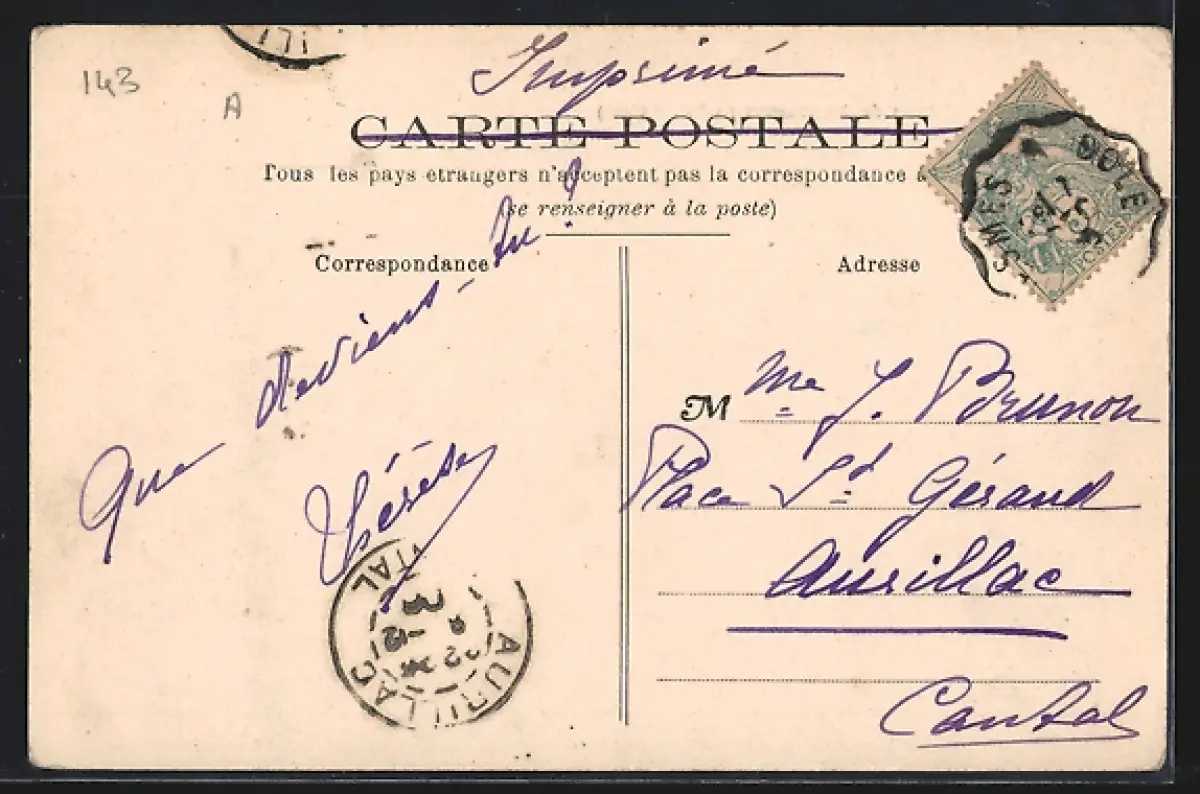 143
A
Imprimé
CARTE POSTALE
Tous les pays étrangers n'acceptent pas la correspondance à
(se renseigner à la poste)
Correspondance
Que deviens-tu?
Thérèse
Adresse
M me J. Brunon
Place St Géraud
Aurillac
Cantal
DOLE
AURILLAC